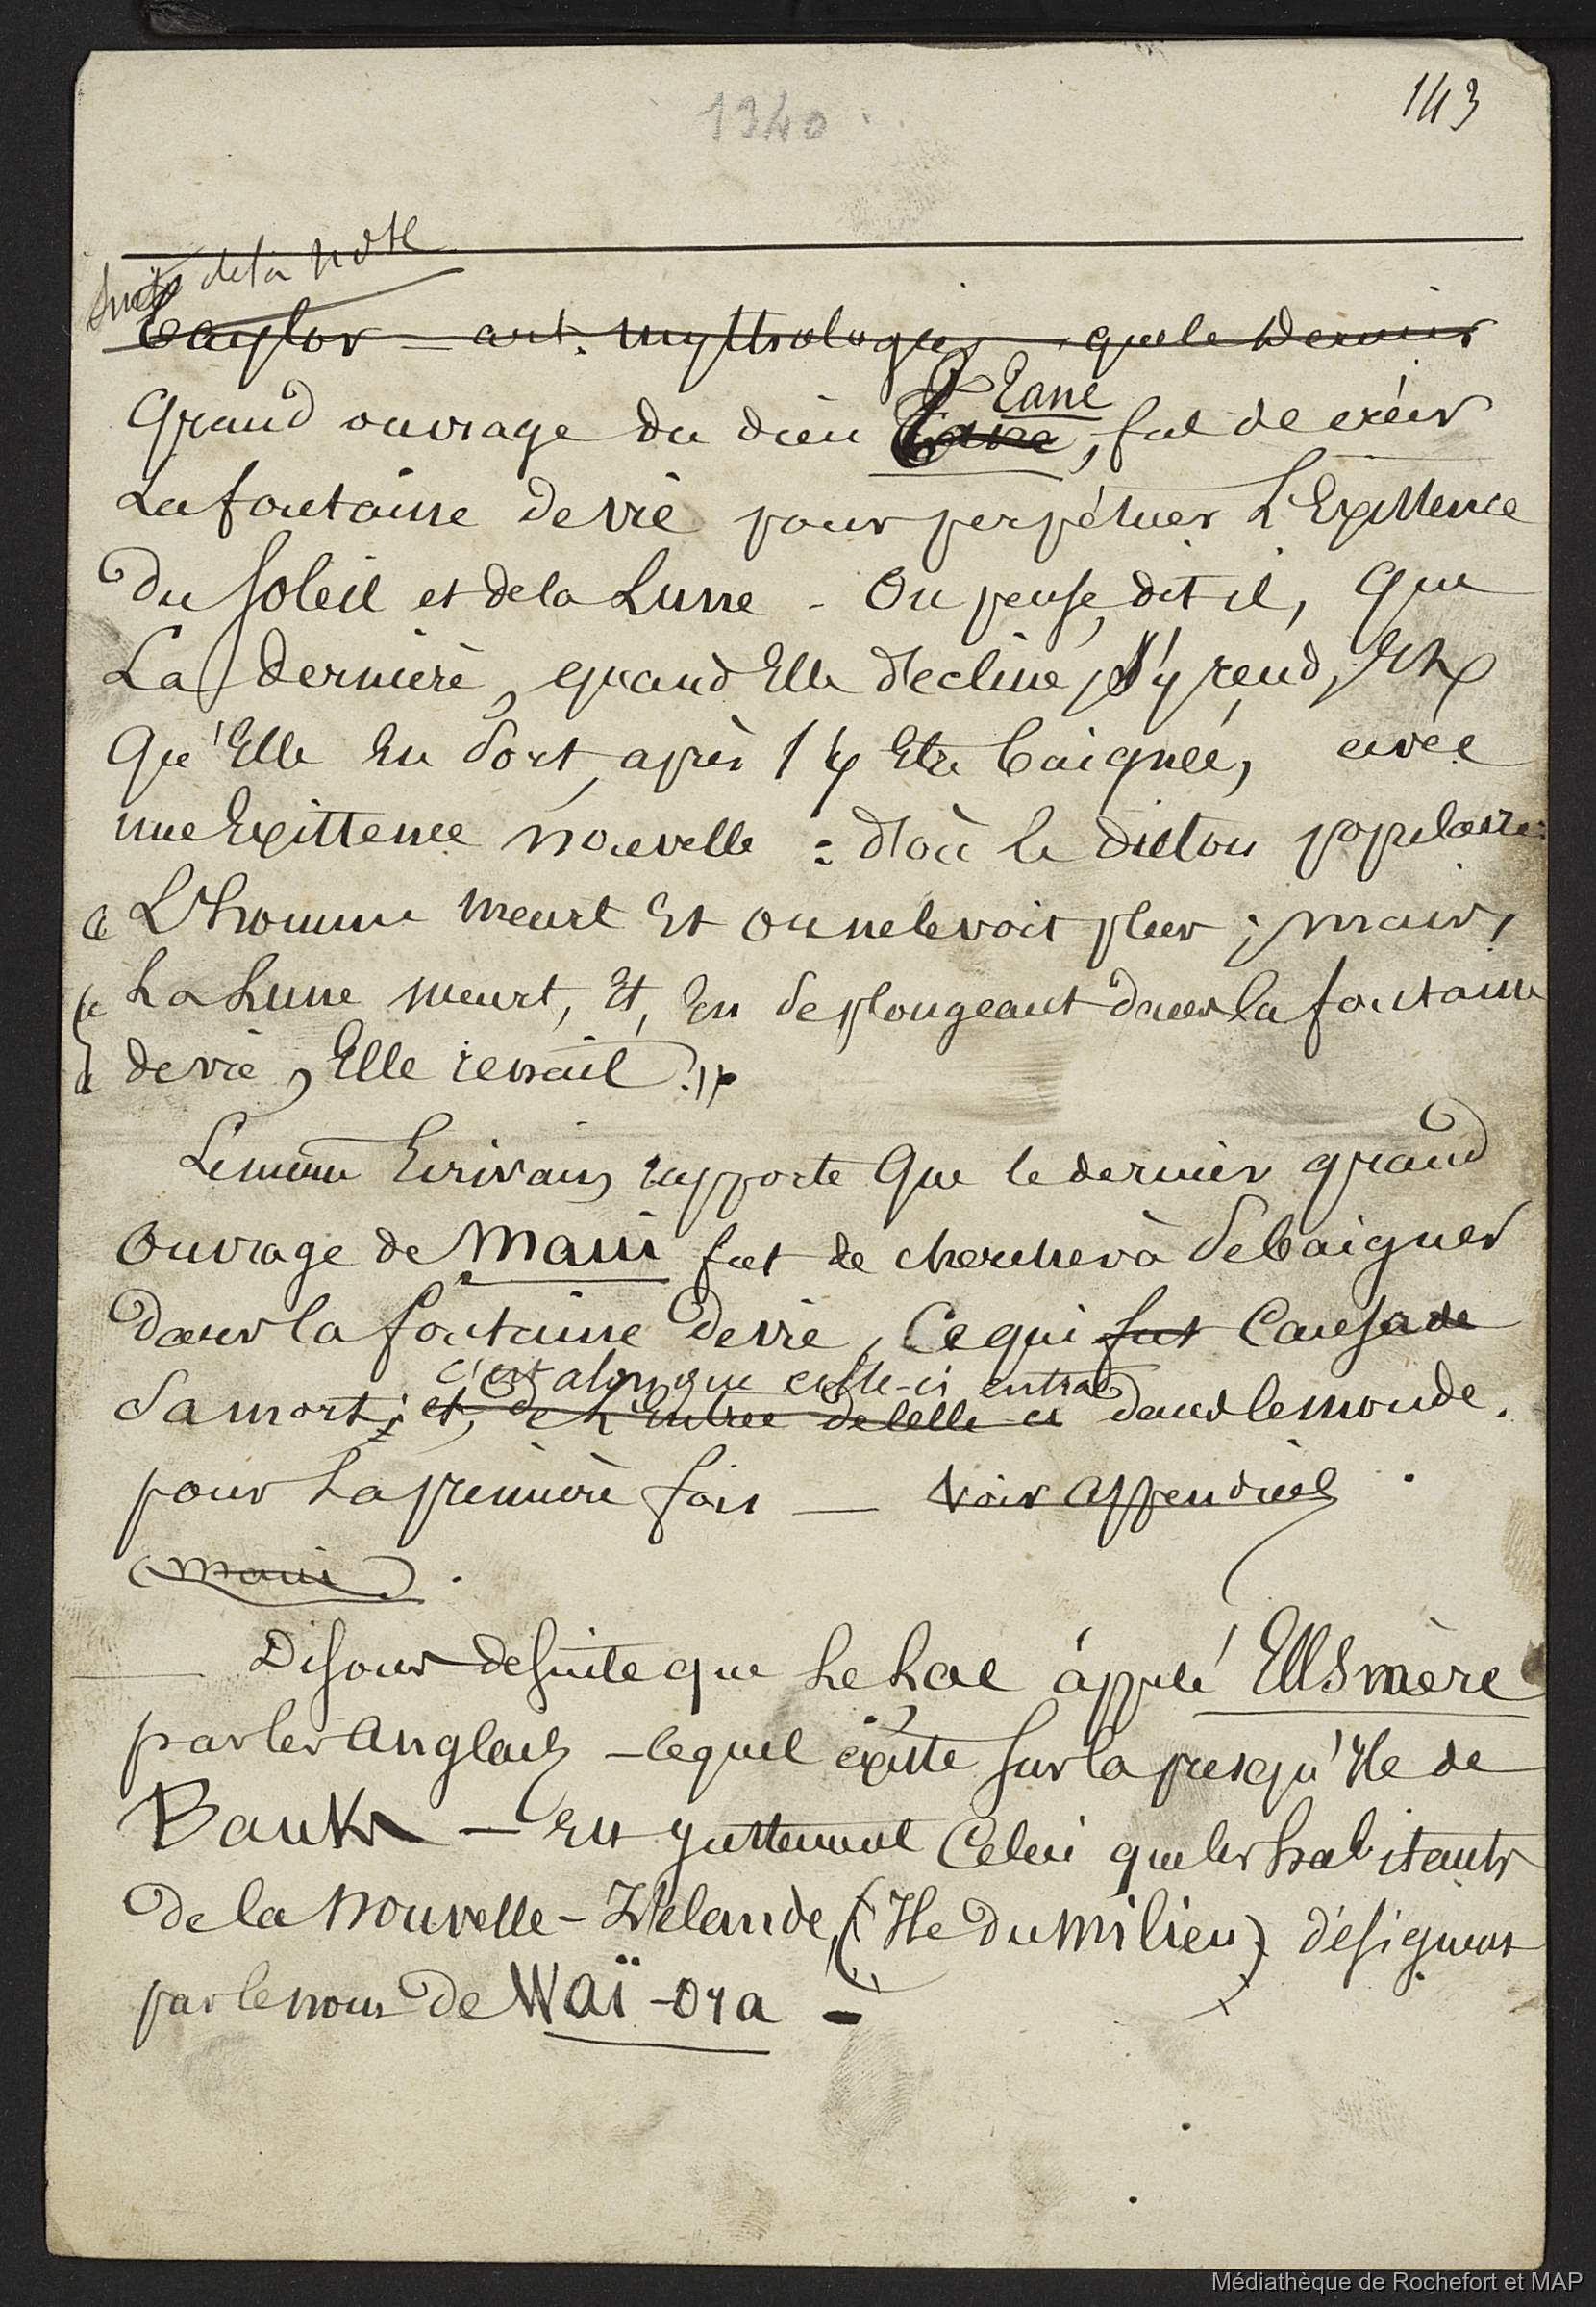 143
1340
suite de la note
Taylor - art. mythologie, que le Dernier
Grand ouvrage du dieu Tane, fut de créer
Tane
La fontaine de vie pour perpétuer L'Existence
Du Soleil et de la Lune - On pense, dit il, Que
La Dernière, quand Elle décline, s'y rend, Et
Qu'Elle En Sort, après s'y Etre baignée, avec
une Existence nouvelle : d'où le dicton populaire:
« L'homme meurt Et on ne le voit plus ; mais,
« La Lune meurt, Et, En se plongeant dans la fontaine
« de vie, Elle renait. »
Le même Ecrivain rapporte Que le dernier grand
Ouvrage de Maui fut de chercher à se baigner
dans la fontaine de vie, Ce qui fut Causa de
c'est alors que celle-ci entra
Sa mort; et, de L'Entrée de celle ci dans le monde.
pour La première fois — Voir appendice
(Maui).
Disons de suite que Le Lac appelé Ellsmère
par les Anglais - lequel existe sur la presqu'Ile de
Banks — Est justement Celui que les habitants
de la Nouvelle-Zélande, (Ile du Milieu) désignent
par le nom de Waï-ora -
Médiathèque de Rochefort et MAP